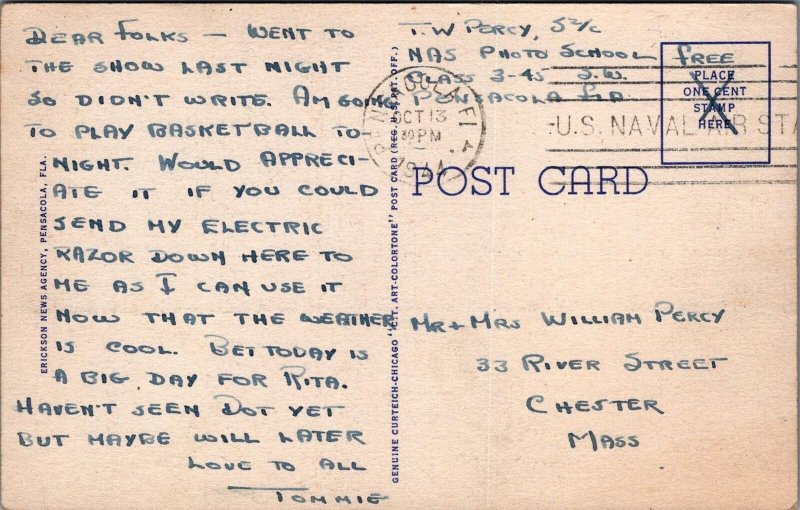 DEAR FOLKS — WENT TO
THE SHOW LAST NIGHT
SO DIDN'T WRITE. AM GOING
TO PLAY BASKETBALL TO-
NIGHT. WOULD APPRECI-
ATE IT IF YOU COULD
SEND MY ELECTRIC
RAZOR DOWN HERE TO
ME AS I CAN USE IT
NOW THAT THE WEATHER
IS COOL. BET TODAY IS
A BIG DAY FOR RITA.
HAVEN'T SEEN DOT YET
BUT MAYBE WILL LATER
LOVE TO ALL
TOMMIE
ERICKSON NEWS AGENCY, PENSACOLA, FLA.
GENUINE CURTEICH-CHICAGO "C.T. ART-COLORTONE" POST CARD (REG. U.S. PAT. OFF.)
T.W PERCY, S2/C
NAS PHOTO SCHOOL
CLASS 3-45 S.W.
PENSACOLA FLA
FREE
PLACE
ONE CENT
STAMP
HERE
PENSACOLA, FLA.
OCT 13
30 PM
1944
U.S. NAVAL AIR STA
POST CARD
MR + MRS WILLIAM PERCY
33 RIVER STREET
CHESTER
MASS